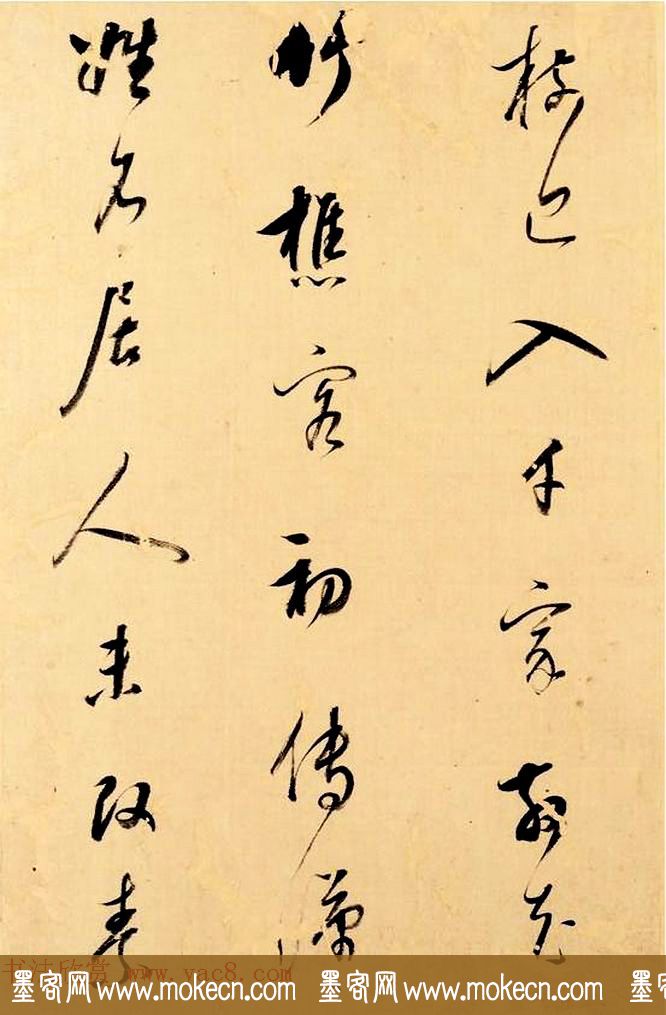 樹近入千家散花
竹樵客初傳漢
姓名居人未改秦
书法欣赏 www.yac8.com
墨客网 www.mokecn.com 墨客网 www.mokecn.com